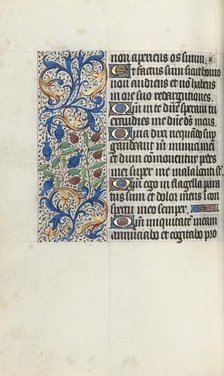 non aperiens os suum.
Et factus sum sicut homo
non audiens et non habens
in ore suo redargutiones.
Quoniam in te domine speravi tu
exaudies me domine deus meus.
Quia dixi nequando super
gaudeant michi inimici mei et
dum commoventur pedes
mei super me magna locuti sunt.
Quoniam ego in flagella para
tus sum et dolor meus in con
spectu meo semper.
Quoniam iniquitatem meam
annunciabo et cogitabo pro